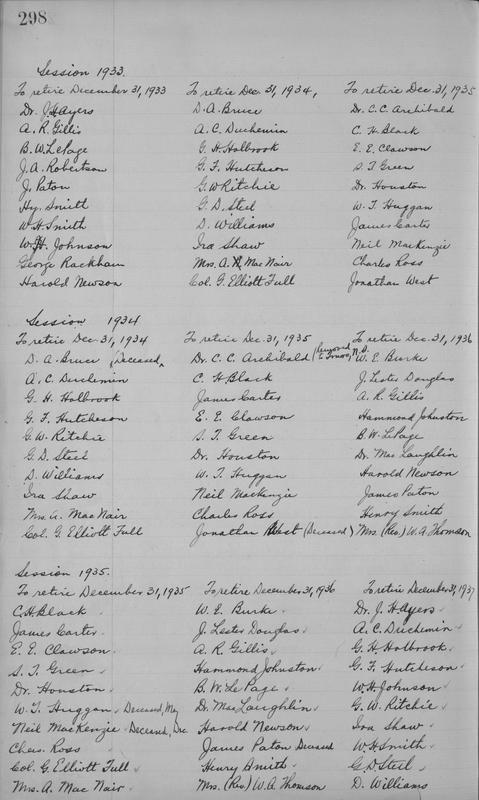 298
Session 1933.
To retire December 31, 1933 To retire Dec. 31, 1934, To retire Dec. 31, 1935
Dr. J. H. Ayers D. A. Bruce Dr. C. C. Archibald
A. R. Gillis A. C. Duchemin C. H. Black
B. W. LePage G. H. Holbrook E. E. Clawson
J. A. Robertson G. F. Hutcheson S. T. Green
J. Paton G. W. Ritchie Dr. Houston
Hy. Smith G. D. Steel W. T. Huggan
W. H. Smith D. Williams James Carter
W. H. Johnson Ira Shaw Neil MacKenzie
George Rackham Mrs. A. MacNair Charles Ross
Harold Newson Col. G. Elliott Full Jonathan West
Session 1934
To retire Dec. 31, 1934 To retire Dec. 31, 1935 To retire Dec. 31, 1936
D. A. Bruce (Deceased) Dr. C. C. Archibald (Removed to Truro, N.S. W. E. Burke
A. C. Duchemin C. H. Black J. Lester Douglas
G. H. Holbrook James Carter A. R. Gillis
G. F. Hutcheson E. E. Clawson Hammond Johnston
G. W. Ritchie S. T. Green B. W. LePage
G. D. Steel Dr. Houston Dr. MacLaughlin
D. Williams W. T. Huggan Harold Newson
Ira Shaw Neil MacKenzie James Paton
Mrs. A. MacNair Charles Ross Henry Smith
Col. G. Elliott Full Jonathan West (Deceased) Mrs. (Rev.) W. A. Thomson
Session 1935.
To retire December 31, 1935 To retire December 31, 1936 To retire December 31, 1937
C. H. Black W. E. Burke Dr. J. H. Ayers
James Carter J. Lester Douglas A. C. Duchemin
E. E. Clawson A. R. Gillis G. H. Holbrook
S. T. Green Hammond Johnston G. F. Hutcheson
Dr. Houston B. W. Le Page W. H. Johnson
W. T. Huggan Deceased, May Dr. MacLaughlin G. W. Ritchie
Neil MacKenzie Deceased, Dec. Harold Newson Ira Shaw
Chas. Ross James Paton Deceased W. H. Smith
Col. G. Elliott Full Henry Smith G. D. Steel
Mrs. A. Mac Nair Mrs. (Rev) W. A. Thomson D. Williams